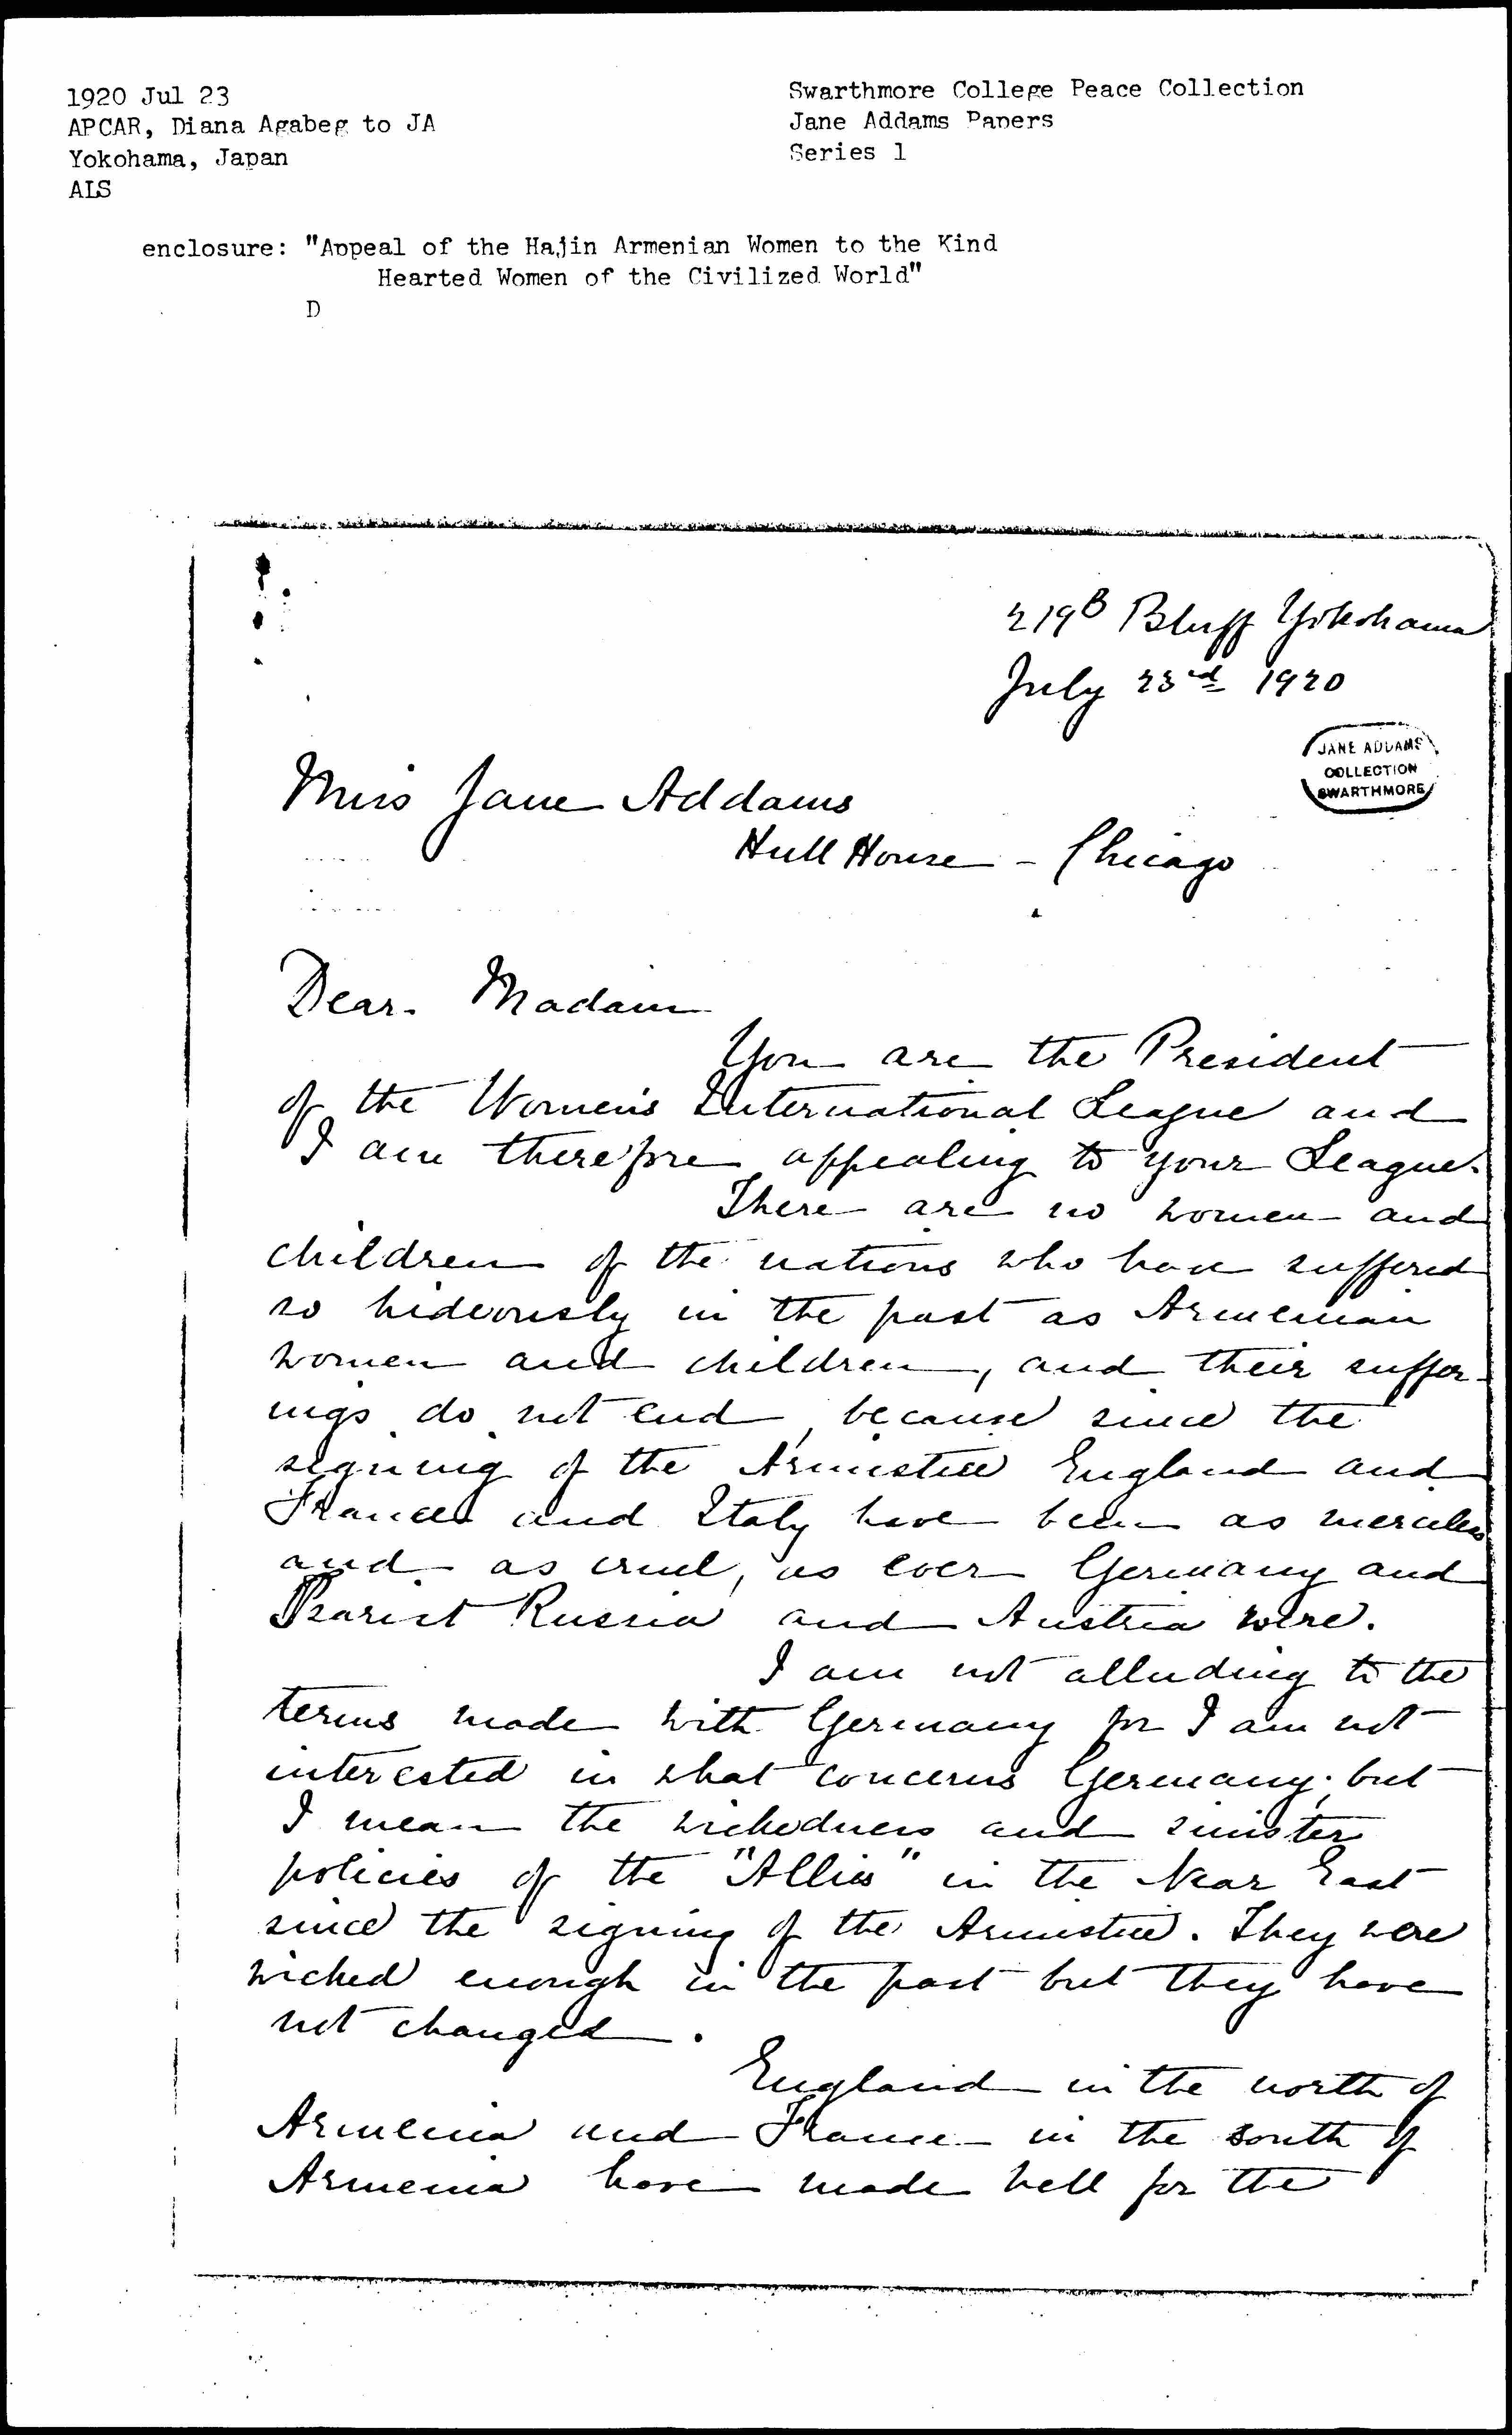 1920 Jul 23
APCAR, Diana Agabeg to JA
Yokohama, Japan
ALS
Swarthmore College Peace Collection
Jane Addams Papers
Series 1
enclosure: "Appeal of the Hajin Armenian Women to the Kind
Hearted Women of the Civilized World"
D
219B Bluff Yokohama
July 23rd 1920
JANE ADDAMS
COLLECTION
SWARTHMORE
Miss Jane Addams
Hull House - Chicago
Dear. Madam
You are the President
of the Women's International League and
I am therefore appealing to your League.
There are no women and
children of the nations who have suffered
so hideously in the past as Armenian
women and children, and their suffer-
ings do not end, because since the
signing of the Armistice England and
France and Italy have been as merciless
and as cruel, as ever Germany and
Tzarist Russia and Austria were.
I am not alluding to the
terms made with Germany for I am not
interested in what concerns Germany; but
I mean the wickedness and sinister
policies of the "Allies" in the Near East
since the signing of the Armistice. They were
wicked enough in the past but they have
not changed.
England in the north of
Armenia and France in the south of
Armenia have made hell for the